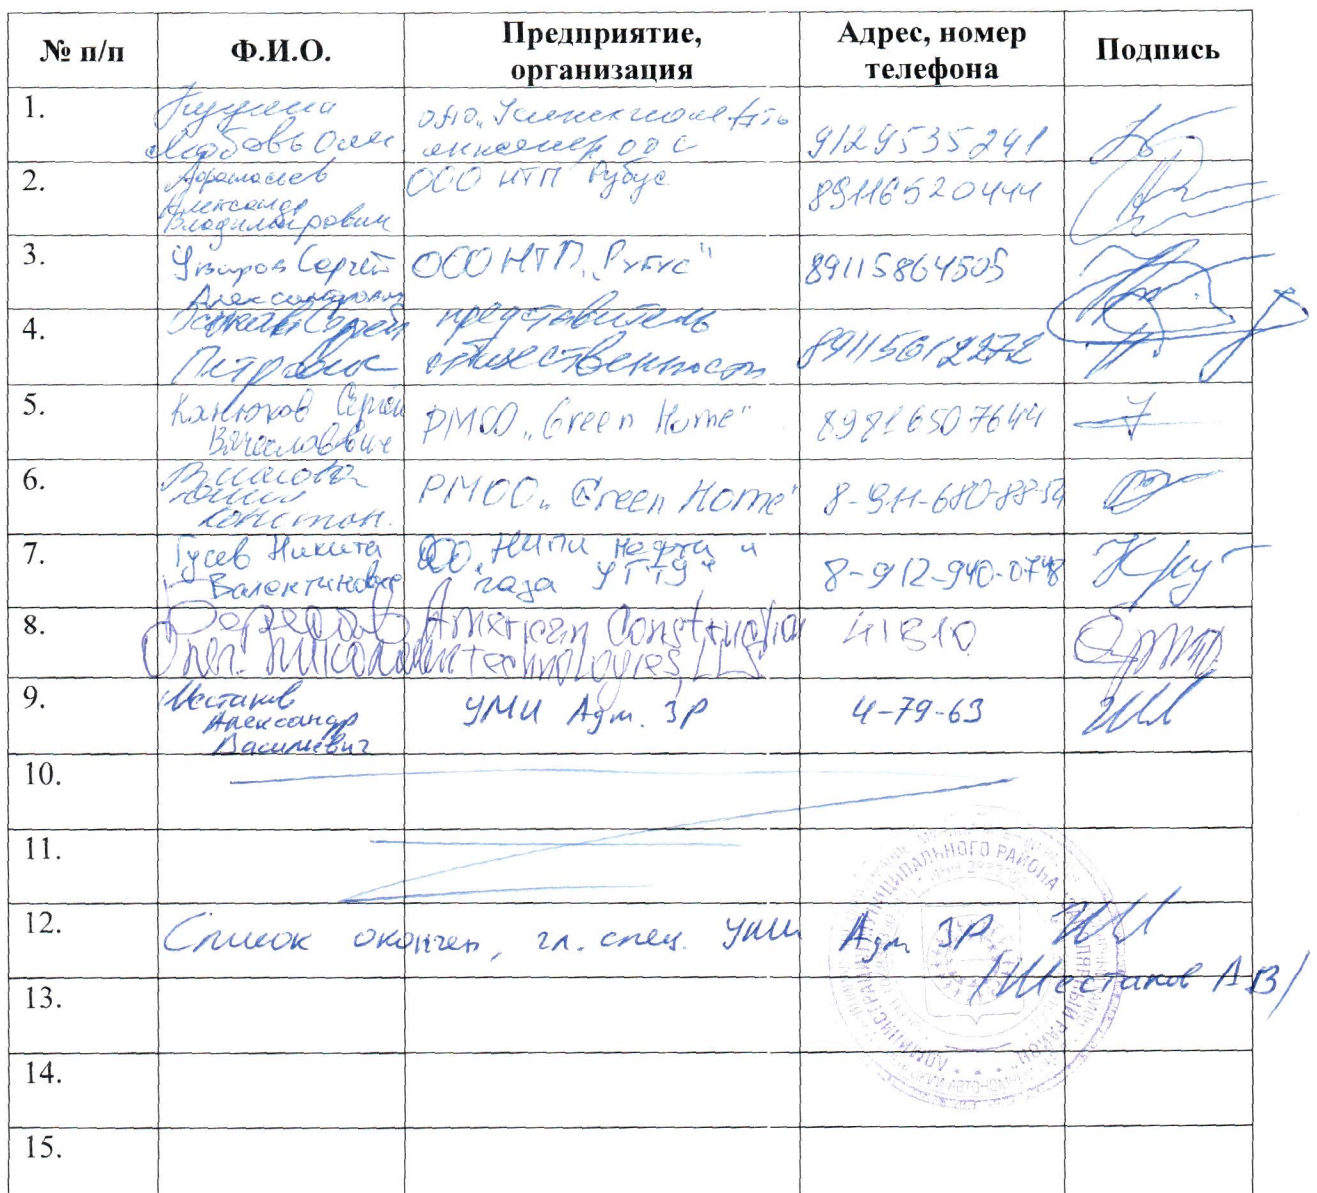 № п/п
Ф.И.О.
Предприятие,
организация
Адрес, номер
телефона
Подпись
1.
Любовь
9129535241
2.
Афанасьев
Александр
Владимирович
ООО НТП Рубус
89116520444
3.
Сергей
Александрович
ООО НТП „Рубус"
89115864505
4.
Сергей
Петрович
представитель
общественности
89115612272
5.
Канюков Сергей
Вячеславович
РМОО „Green Home"
89816507644
6.
Констан.
РМОО „Green Home"
8-911-680-88-54
7.
Гусев Никита
Валентинович
ООО „НИПИ нефти и
газа УГТУ"
8-912-940-0748
8.
Олег Николаевич
American Construction
technologies, LLS
41810
9.
Шестаков
Александр
Васильевич
УМИ Адм. ЗР
4-79-63
10.
11.
12.
Список окончен, гл. спец. УМИ Адм ЗР
/Шестаков А.В/
13.
14.
15.
МУНИЦИПАЛЬНОГО РАЙОНА
ЗАПОЛЯРНЫЙ РАЙОН
АДМИНИСТРАЦИЯ